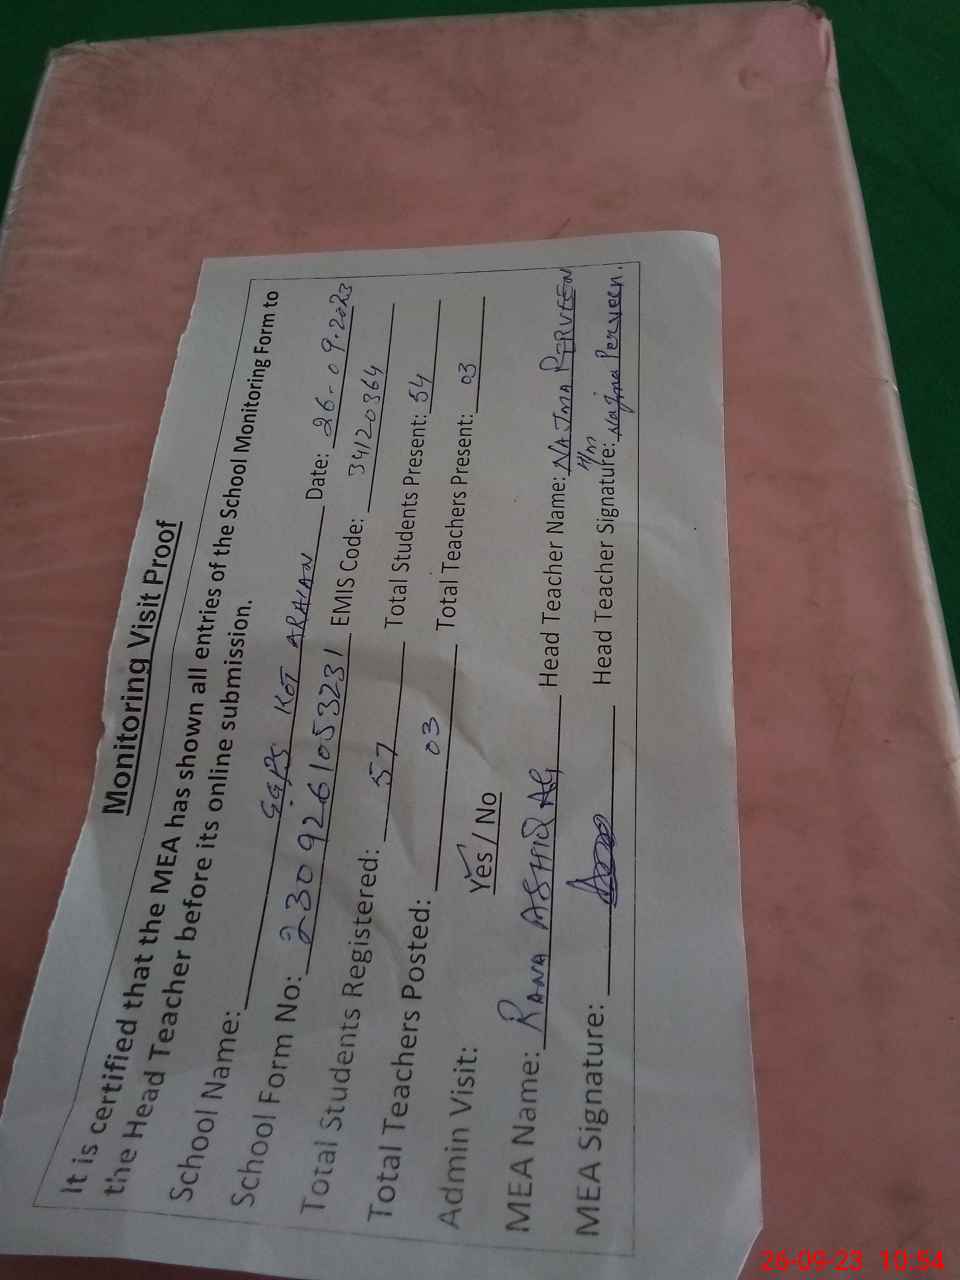 Monitoring Visit Proof
It is certified that the MEA has shown all entries of the School Monitoring Form to
the Head Teacher before its online submission.
School Name: GGPS KOT ARAIAN Date: 26-09-2023
School Form No: 2309261053231 EMIS Code: 34120364
Total Students Registered: 57 Total Students Present: 54
Total Teachers Posted: 03 Total Teachers Present: 03
Admin Visit: Yes / No
MEA Name: RANA ASHIQ ALI Head Teacher Name: NAJMA PERVEEN
MEA Signature: Head Teacher Signature: Najma Perveen.
26-09-23 10:54